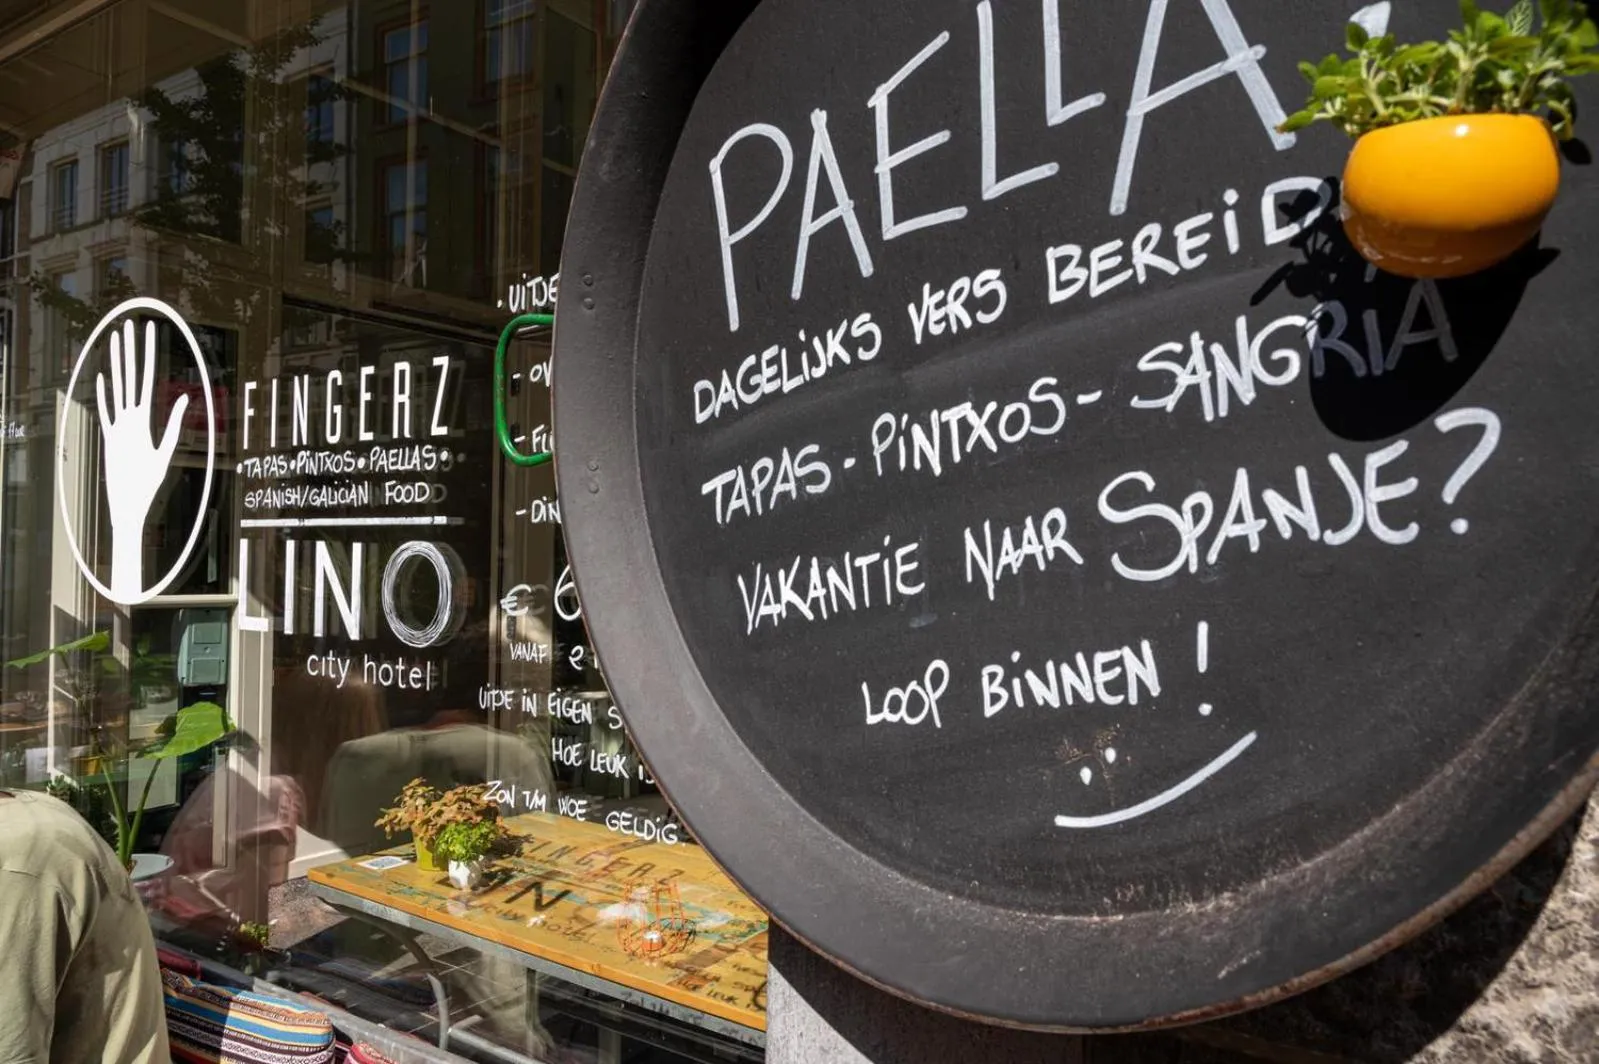 FINGERZ
•TAPAS•PINTXOS•PAELLAS•
SPANISH/GALICIAN FOOD
LINO
city hotel
UITJE
VANAF
UITJE IN EIGEN
HOE LEUK
ZON T/M WOE GELDIG.
PAELLA!
DAGELIJKS VERS BEREID
TAPAS - PINTXOS - SANGRIA
VAKANTIE NAAR SPANJE?
LOOP BINNEN!